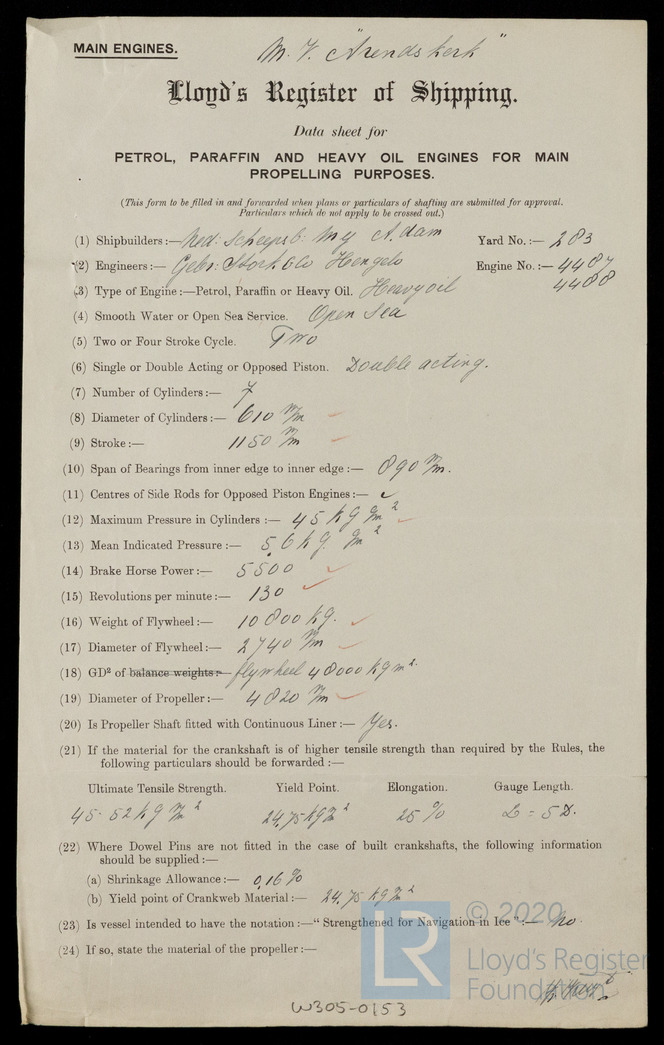 MAIN ENGINES.
M.V. "Arendskerk"
Lloyd's Register of Shipping.
Data sheet for
PETROL, PARAFFIN AND HEAVY OIL ENGINES FOR MAIN
PROPELLING PURPOSES.
(This form to be filled in and forwarded when plans or particulars of shafting are submitted for approval.
Particulars which do not apply to be crossed out.)
(1) Shipbuilders:— Ned: Scheepsb: My A.dam Yard No.:— 283
(2) Engineers:— Gebr: Stork & Co Hengelo Engine No.:— 4487
4488
(3) Type of Engine:—Petrol, Paraffin or Heavy Oil. Heavy oil
(4) Smooth Water or Open Sea Service. Open Sea
(5) Two or Four Stroke Cycle. Two
(6) Single or Double Acting or Opposed Piston. Double acting.
(7) Number of Cylinders:— 7
(8) Diameter of Cylinders:— 610 m/m
(9) Stroke:— 1150 m/m
(10) Span of Bearings from inner edge to inner edge:— 890 m/m.
(11) Centres of Side Rods for Opposed Piston Engines:—
(12) Maximum Pressure in Cylinders:— 45 kg c/m²
(13) Mean Indicated Pressure:— 5,6 kg. c/m²
(14) Brake Horse Power:— 5500
(15) Revolutions per minute:— 130
(16) Weight of Flywheel:— 10800 kg.
(17) Diameter of Flywheel:— 2740 m/m
(18) GD² of balance weights:— flywheel 48000 kg m².
(19) Diameter of Propeller:— 4820 m/m
(20) Is Propeller Shaft fitted with Continuous Liner:— Yes.
(21) If the material for the crankshaft is of higher tensile strength than required by the Rules, the
following particulars should be forwarded:—
Ultimate Tensile Strength. Yield Point. Elongation. Gauge Length.
45-52 kg m/m² 24,75 kg m/m² 25 % L = 5 D.
(22) Where Dowel Pins are not fitted in the case of built crankshafts, the following information
should be supplied:—
(a) Shrinkage Allowance:— 0,16 %
(b) Yield point of Crankweb Material:— 24,75 kg m/m²
(23) Is vessel intended to have the notation:—"Strengthened for Navigation in Ice":— No.
(24) If so, state the material of the propeller:—
LR
© 2020
Lloyd's Register
Foundation
W305-0153